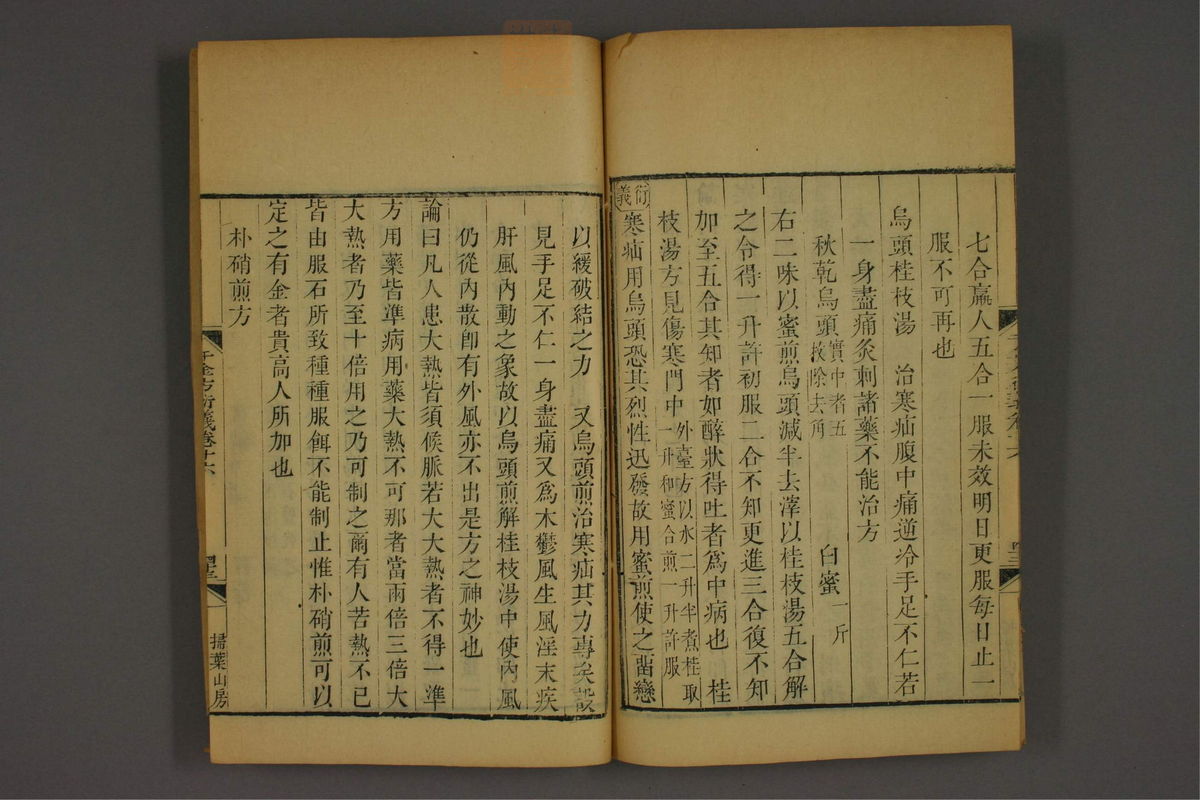 七合羸人五合一服未效明日更服每日止一
服不可再也
烏頭桂枝湯　治寒疝腹中痛逆冷手足不仁若
一身盡痛灸刺諸藥不能治方
秋乾烏頭實中者五枚除去角　白蜜一斤
右二味以蜜煎烏頭減半去滓以桂枝湯五合解
之令得一升許初服二合不知更進三合復不知
加至五合其知者如醉狀得吐者為中病也　桂
枝湯方見傷寒門中外臺方以水二升半煮桂取一升和蜜合煎一升許服
衍義寒疝用烏頭恐其烈性迅發故用蜜煎使之留戀
以緩破結之力　又烏頭煎治寒疝其力專矣設
見手足不仁一身盡痛又為木鬱風生風淫末疾
肝風內動之象故以烏頭煎解桂枝湯中使內風
仍從內散卽有外風亦不出是方之神妙也
論曰凡人患大熱皆須候脈若大大熱者不得一準
方用藥皆準病用藥大熱不可那者當兩倍三倍大
大熱者乃至十倍用之乃可制之爾有人苦熱不已
皆由服石所致種種服餌不能制止惟朴硝煎可以
定之有金者貴高人所加也
朴硝煎方
千金方衍義卷十六
四三
掃葉山房